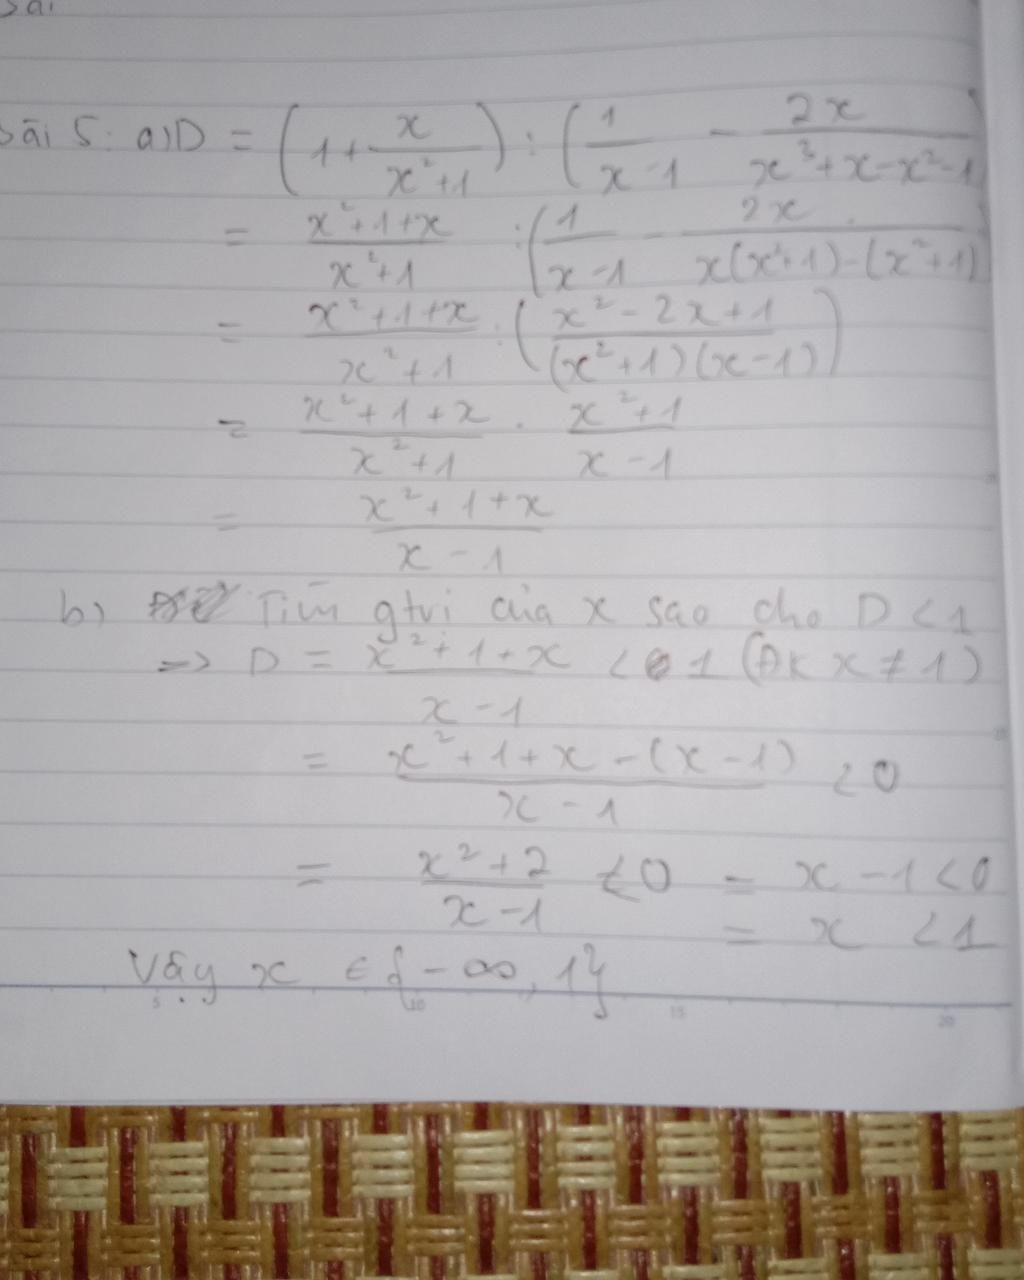 Bài 5: a) D = (1 + x/(x²+1)) : (1/(x-1) - 2x/(x³+x-x²-1))
= (x²+1+x)/(x²+1) : (1/(x-1) - 2x/(x(x²+1)-(x²+1)))
= (x²+1+x)/(x²+1) : ((x²-2x+1)/((x²+1)(x-1)))
= (x²+1+x)/(x²+1) . (x²+1)/(x-1)
= (x²+1+x)/(x-1)
b) Tìm gtrị của x sao cho D < 1
=> D = (x²+1+x)/(x-1) < 1 (ĐK x ≠ 1)
= (x²+1+x-(x-1))/(x-1) < 0
= (x²+2)/(x-1) < 0 = x-1<0
= x < 1
Vậy x ∈ {-∞, 1}
5 10 15 20